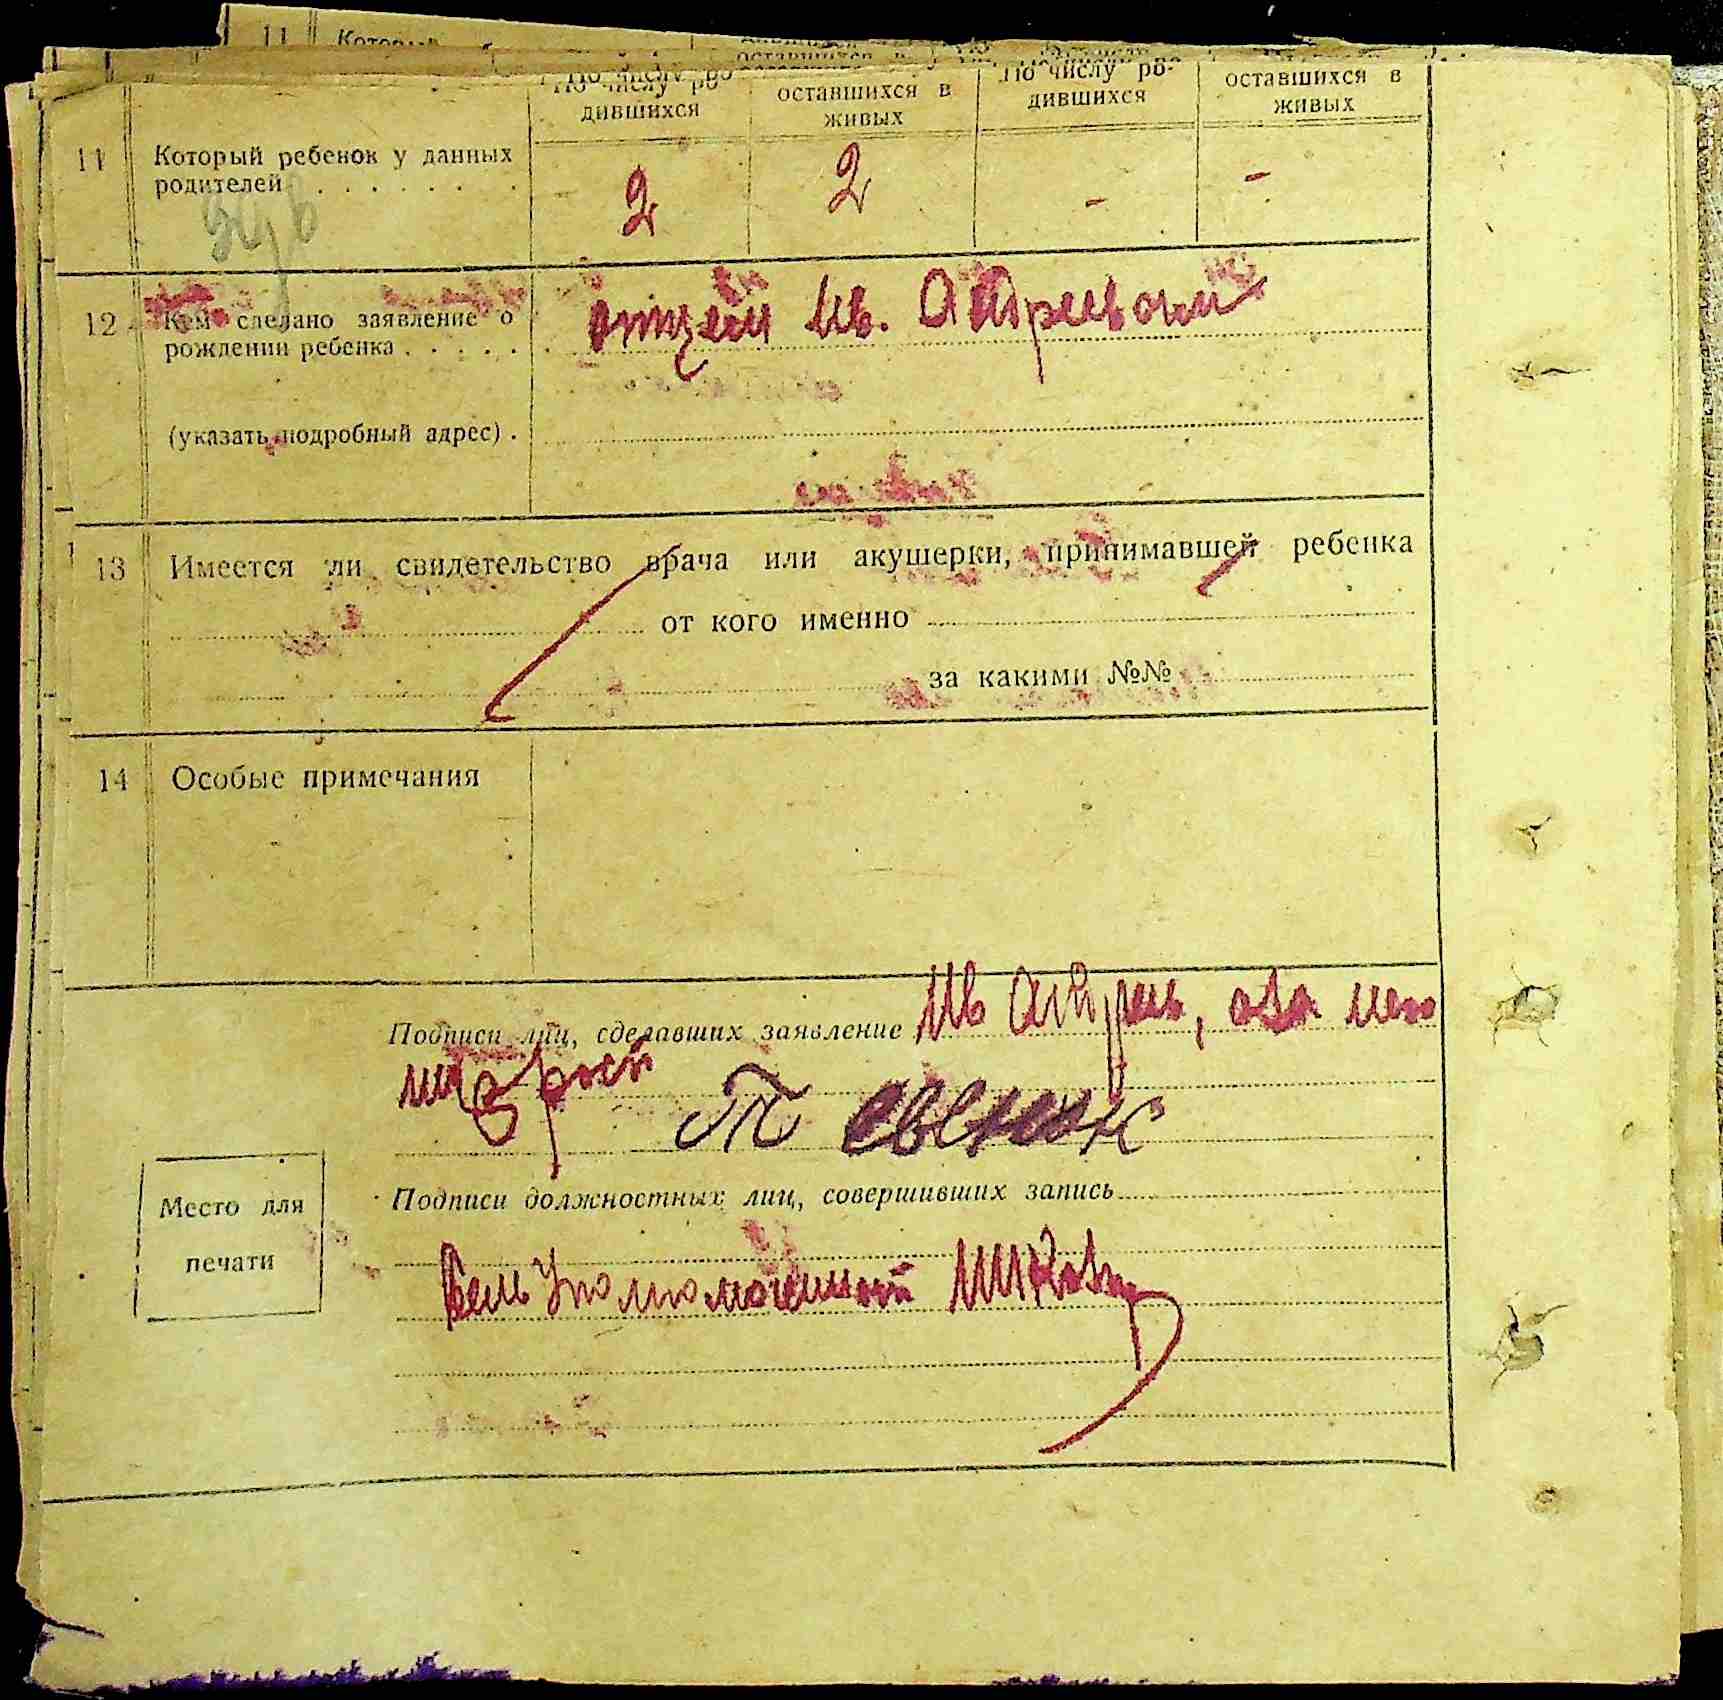 11 Который
По числу ро- оставшихся в По числу ро- оставшихся в
дившихся живых дившихся живых
11 Который ребенок у данных
родителей . . . . . . . 2 2 - -
12 Кем сделано заявление о отцем Ив.
рождении ребенка . . . . .
(указать подробный адрес) .
13 Имеется ли свидетельство врача или акушерки, принимавшей ребенка
от кого именно
за какими №№
14 Особые примечания
Подписи лиц, сделавших заявление Ив
Подписи должностных лиц, совершивших запись
Место для
печати
Уполномоченный